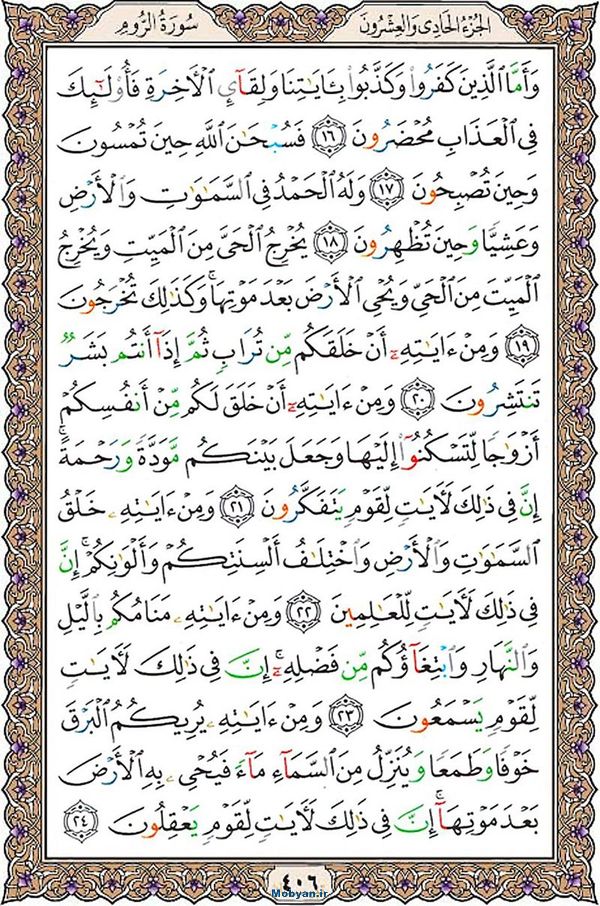 الجُزْءُ الحَادِى وَالعِشْرُونَ
سُورَةُ الرُّومِ
وَأَمَّا ٱلَّذِينَ كَفَرُوا۟ وَكَذَّبُوا۟ بِـَٔايَـٰتِنَا وَلِقَآئِ ٱلْـَٔاخِرَةِ فَأُو۟لَـٰٓئِكَ
فِى ٱلْعَذَابِ مُحْضَرُونَ ١٦ فَسُبْحَـٰنَ ٱللَّهِ حِينَ تُمْسُونَ
وَحِينَ تُصْبِحُونَ ١٧ وَلَهُ ٱلْحَمْدُ فِى ٱلسَّمَـٰوَٰتِ وَٱلْأَرْضِ
وَعَشِيًّا وَحِينَ تُظْهِرُونَ ١٨ يُخْرِجُ ٱلْحَىَّ مِنَ ٱلْمَيِّتِ وَيُخْرِجُ
ٱلْمَيِّتَ مِنَ ٱلْحَىِّ وَيُحْىِ ٱلْأَرْضَ بَعْدَ مَوْتِهَا ۚ وَكَذَٰلِكَ تُخْرَجُونَ
١٩ وَمِنْ ءَايَـٰتِهِۦٓ أَنْ خَلَقَكُم مِّن تُرَابٍ ثُمَّ إِذَآ أَنتُم بَشَرٌ
تَنتَشِرُونَ ٢٠ وَمِنْ ءَايَـٰتِهِۦٓ أَنْ خَلَقَ لَكُم مِّنْ أَنفُسِكُمْ
أَزْوَٰجًا لِّتَسْكُنُوٓا۟ إِلَيْهَا وَجَعَلَ بَيْنَكُم مَّوَدَّةً وَرَحْمَةً ۚ
إِنَّ فِى ذَٰلِكَ لَـَٔايَـٰتٍ لِّقَوْمٍ يَتَفَكَّرُونَ ٢١ وَمِنْ ءَايَـٰتِهِۦ خَلْقُ
ٱلسَّمَـٰوَٰتِ وَٱلْأَرْضِ وَٱخْتِلَـٰفُ أَلْسِنَتِكُمْ وَأَلْوَٰنِكُمْ ۚ إِنَّ
فِى ذَٰلِكَ لَـَٔايَـٰتٍ لِّلْعَـٰلِمِينَ ٢٢ وَمِنْ ءَايَـٰتِهِۦ مَنَامُكُم بِٱلَّيْلِ
وَٱلنَّهَارِ وَٱبْتِغَآؤُكُم مِّن فَضْلِهِۦٓ ۚ إِنَّ فِى ذَٰلِكَ لَـَٔايَـٰتٍ
لِّقَوْمٍ يَسْمَعُونَ ٢٣ وَمِنْ ءَايَـٰتِهِۦ يُرِيكُمُ ٱلْبَرْقَ
خَوْفًا وَطَمَعًا وَيُنَزِّلُ مِنَ ٱلسَّمَآءِ مَآءً فَيُحْىِۦ بِهِ ٱلْأَرْضَ
بَعْدَ مَوْتِهَآ ۚ إِنَّ فِى ذَٰلِكَ لَـَٔايَـٰتٍ لِّقَوْمٍ يَعْقِلُونَ ٢٤
٤٠٦
Mobyan.ir